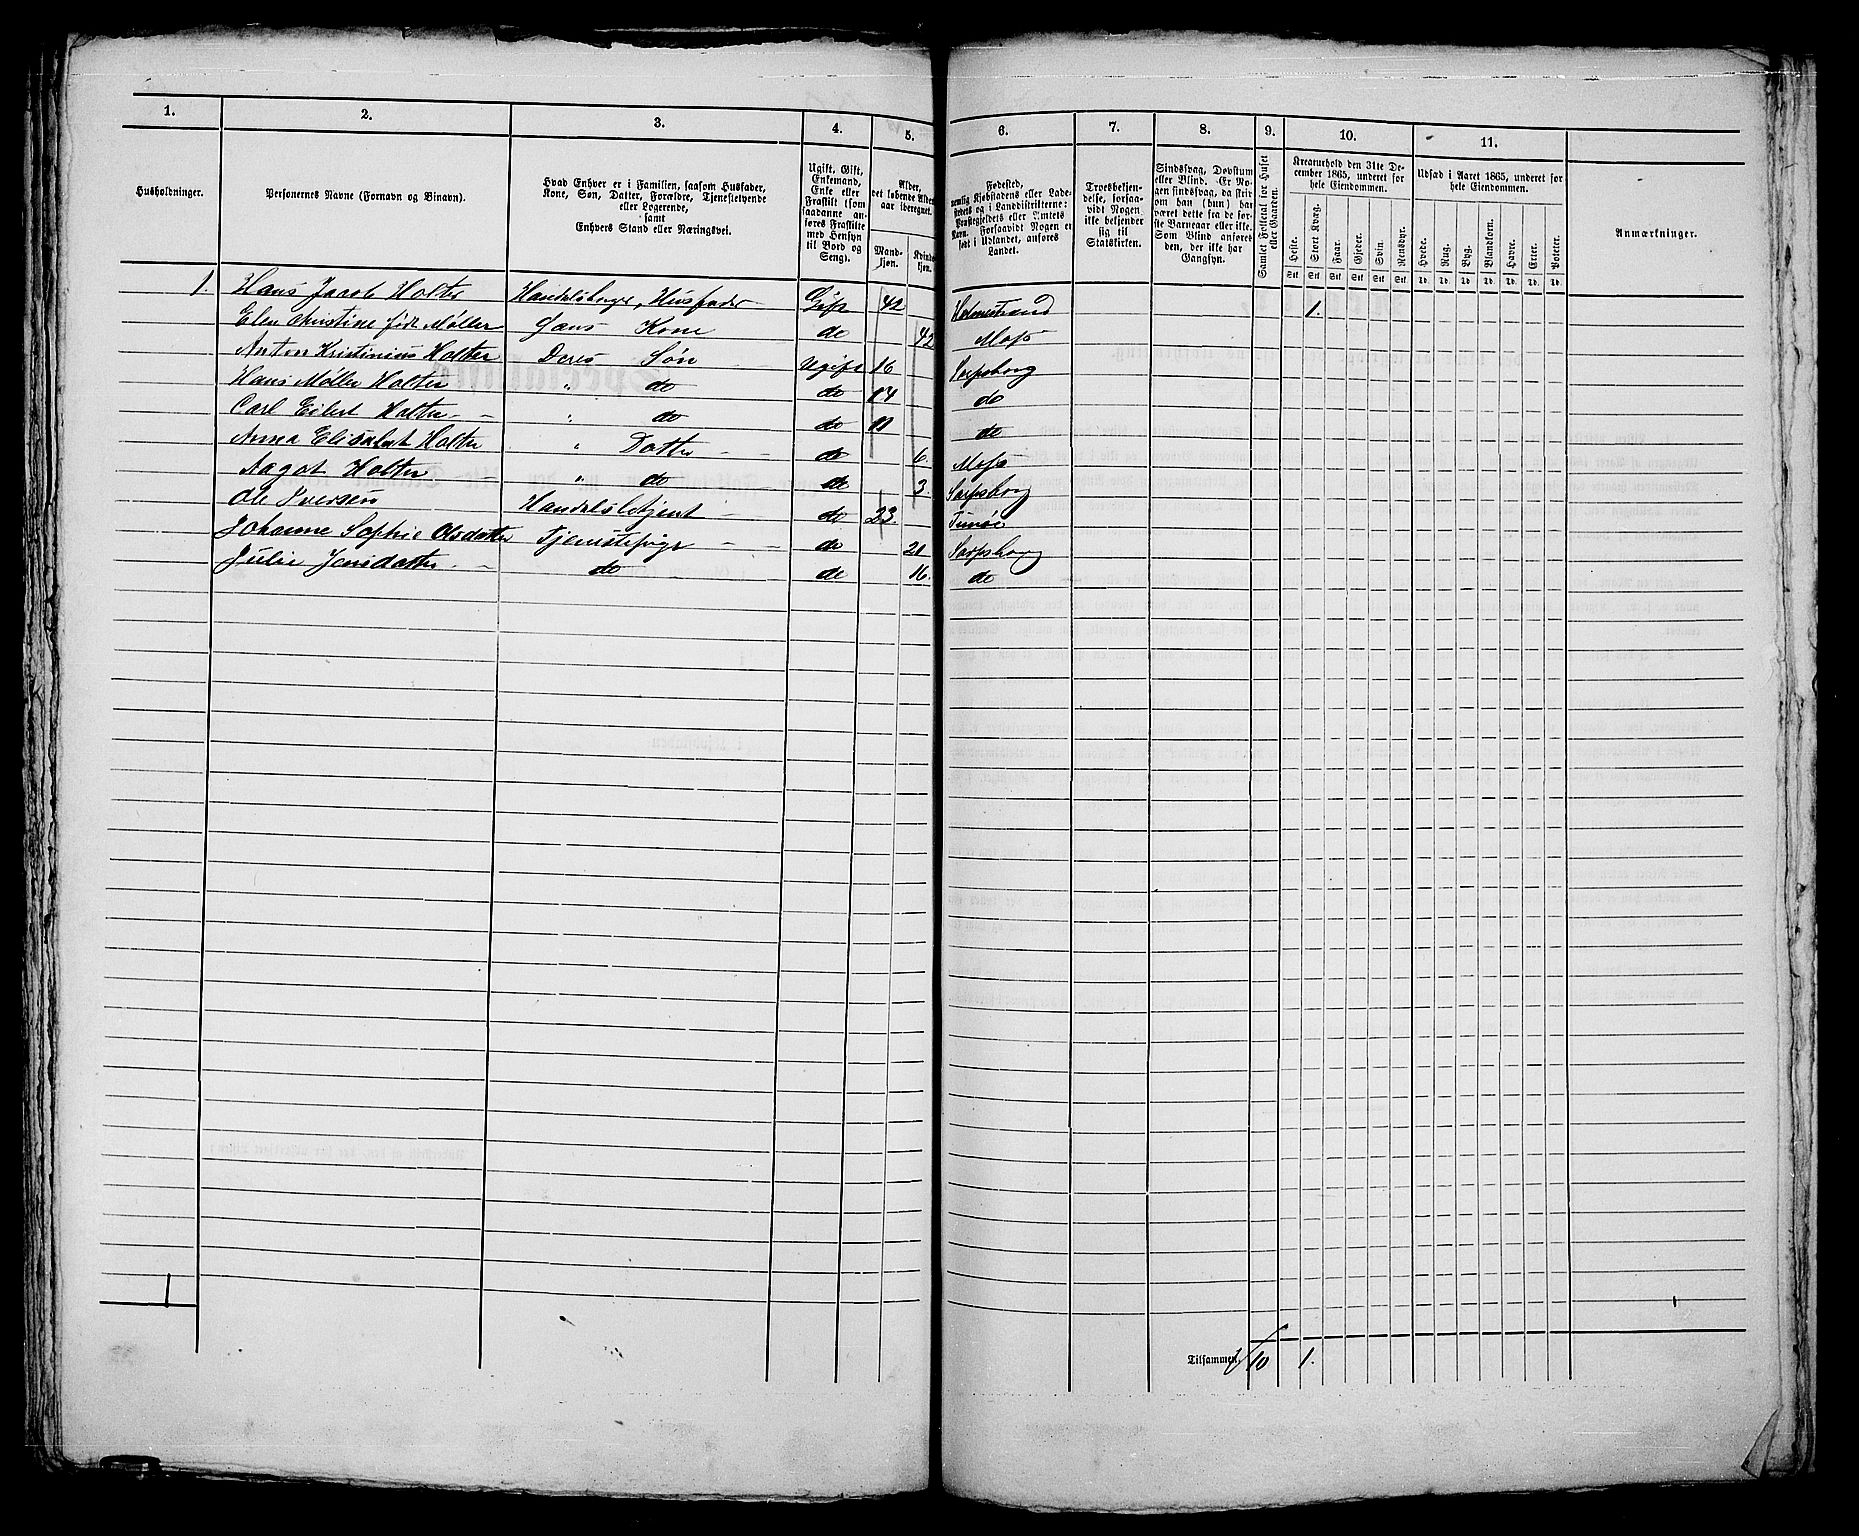 1. 2. 3. 4. 5. 6. 7. 8. 9. 10. 11.
Husholdninger.
Personernes Navne (Fornavn og Binavn).
Hvad Enhver er i Familien, saasom Husfader,
Kone, Søn, Datter, Forældre, Tjenestetyende
eller Logerende,
samt
Enhvers Stand eller Næringsvei.
Ugift, Gift,
Enkemand,
Enke eller
Fraskilt (som
saadanne an-
føres Fraskilte
med Hensyn
til Bord og
Seng).
Alder,
det løbende Alders-
aar iberegnet.
Mand-
kjøn.
Kvind-
kjøn.
Fødested,
nemlig Kjøbstadens eller Lade-
stedets og i Landdistrikterne:
Præstegjeldets eller Amtets
Navn. Forsaavidt Nogen er
født i Udlandet, anføres
Landet.
Troesbekjen-
delse, forsaa-
vidt Nogen
ikke bekjender
sig til
Statskirken.
Sindssvag, Døvstum
eller Blind. Er No-
gen sindssvag, da skri-
ves om han (hun) har
været dette fra de før-
ste Barneaar eller ikke.
Som Blind anføres
den, der ikke har
Gangsyn.
Samlet Folketal for Huset
eller Gaarden.
Kreaturhold den 31te De-
cember 1865, underet for
hele Eiendommen.
Heste. Stort Kvæg. Faar. Gjeder. Svin. Rensdyr.
Stk. Stk. Stk. Stk. Stk. Stk.
Udsæd i Aaret 1865, underet for
hele Eiendommen.
Hvede. Rug. Byg. Blandkorn. Havre. Erter. Poteter.
Td. Td. Td. Td. Td. Td. Td.
Anmærkninger.
1. Hans Jacob Holter Handelsborger, Husfader Gift 42 Holmestrand 1.
Elen Christine født Møller Hans Kone do 42 Moss
Anton Kristinius Holter Deres Søn Ugift 16 Sarpsborg
Hans Møller Holter " do do 14 do
Carl Eilert Holter " do do 11 do
Anna Elisabet Holter " Datter do 6. Moss
Aagot Holter " do do 3. Sarpsborg
Ole Iversen Handelsbetjent do 23. Tunøe
Johanne Sophie Olsdatter Tjenestepige do 21 Sarpsborg
Julie Jensdatter do do 16. do
1
Tilsammen. 10 1.